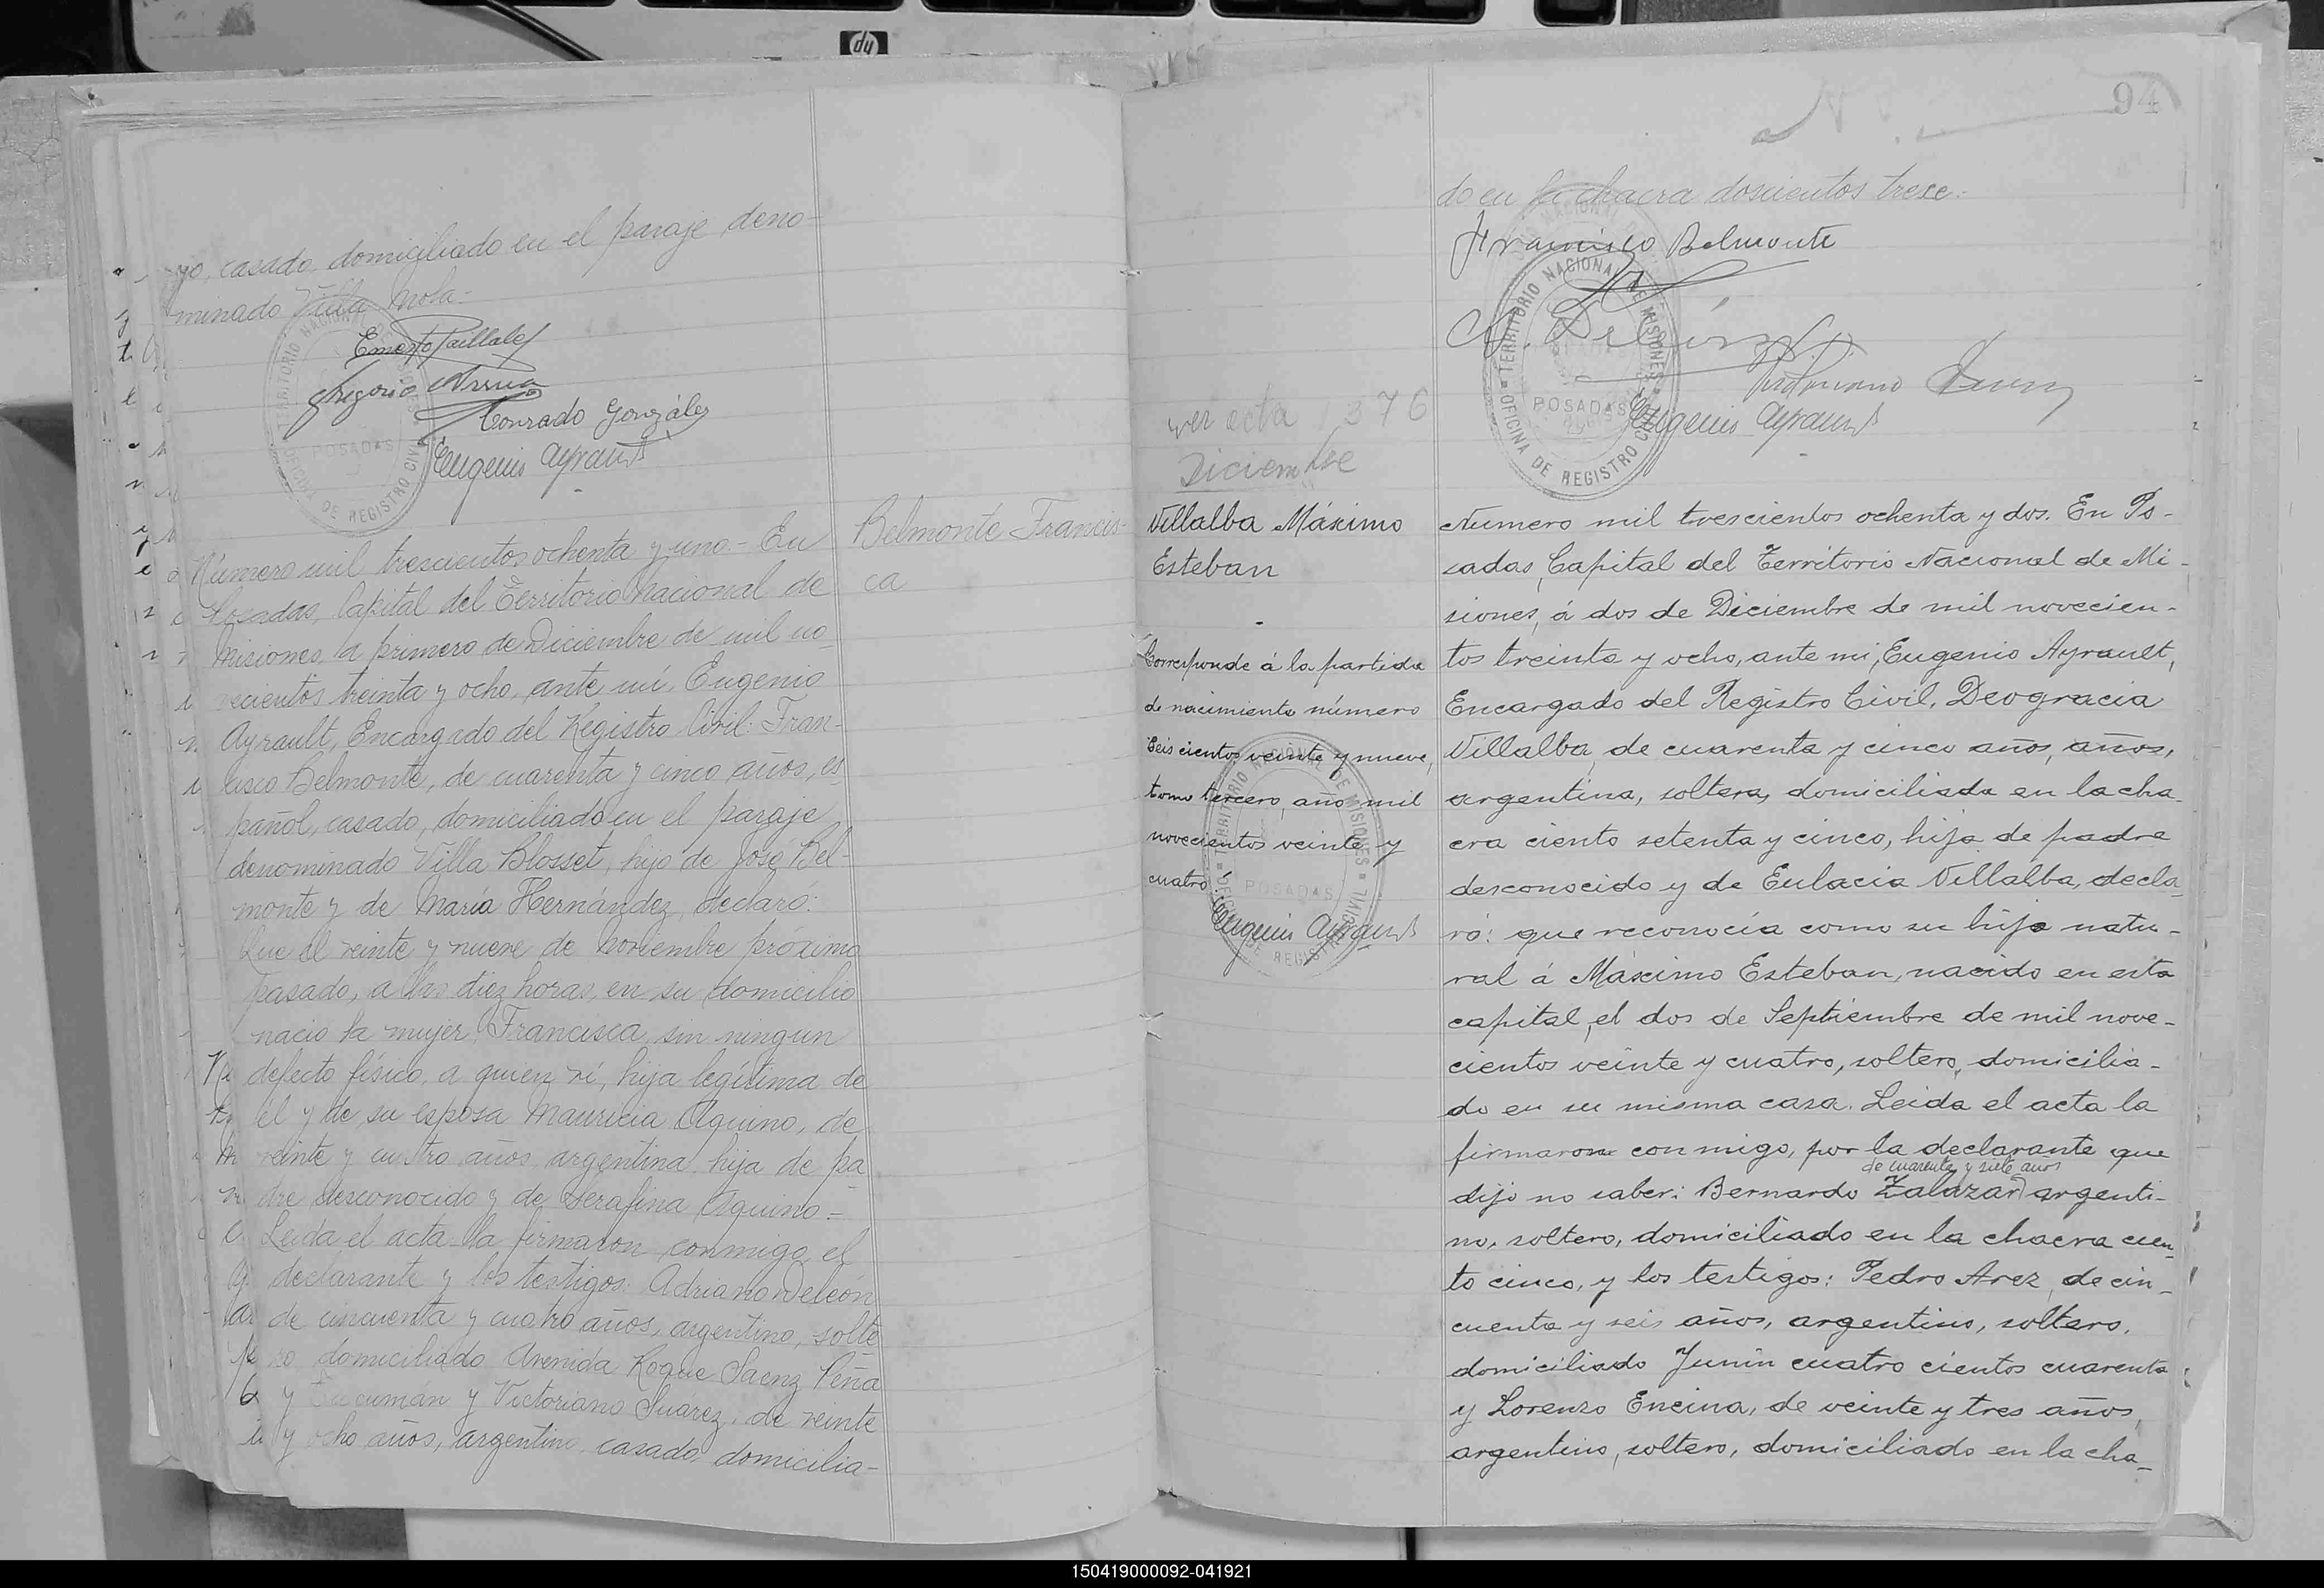 yo, casado, domiciliado en el paraje deno-
minado Villa Nola.-
Gregorio
Conrado González
Eugenio Ayrault
TERRITORIO NACIONAL DE MISIONES
POSADAS
OFICINA DE REGISTRO CIVIL
Belmonte Francis-
ca
Número mil trescientos ochenta y uno.- En
Posadas, Capital del Territorio Nacional de
Misiones, a primero de Diciembre de mil no-
vecientos treinta y ocho, ante mí, Eugenio
Ayrault, Encargado del Registro Civil: Fran-
cisco Belmonte, de cuarenta y cinco años, es-
pañol, casado, domiciliado en el paraje
denominado Villa Blosset, hijo de José Bel-
monte y de María Hernández, declaró:
Que el veinte y nueve de Noviembre próximo
pasado, a las diez horas, en su domicilio
nació la mujer Francisca, sin ningun
defecto físico, a quien ví, hija legítima de
él y de su esposa Mauricia Aquino, de
veinte y cuatro años, argentina, hija de pa-
dre desconocido y de Serafina Aquino.-
Leida el acta la firmaron conmigo, el
declarante y los testigos: Adriano Deleón
de cincuenta y cuatro años, argentino, solte-
ro, domiciliado Avenida Roque Saenz Peña
y Tucumán y Victoriano Suárez, de veinte
y ocho años, argentino, casado, domicilia-
94
do en la chacra doscientos trece.-
Francisco Belmonte
A. Deleón
Victoriano Suarez
Eugenio Ayrault
TERRITORIO NACIONAL DE MISIONES
POSADAS
OFICINA DE REGISTRO CIVIL
ver acta 1376
Diciembre
Villalba Máximo
Esteban
Corresponde á la partida
de nacimiento número
Seis cientos veinte y nueve,
tomo tercero, año mil
novecientos veinte y
cuatro.
Eugenio Ayrault
TERRITORIO NACIONAL DE MISIONES
POSADAS
OFICINA DE REGISTRO CIVIL
Numero mil trescientos ochenta y dos. En Po-
sadas, Capital del Territorio Nacional de Mi-
siones, á dos de Diciembre de mil novecien-
tos treinta y ocho, ante mi, Eugenio Ayrault,
Encargado del Registro Civil, Deogracia
Villalba, de cuarenta y cinco años, años,
argentina, soltera, domiciliada en la cha-
cra ciento setenta y cinco, hija de padre
desconocido y de Eulacia Villalba, decla-
ró: que reconocía como su hijo natu-
ral á Máximo Esteban, nacido en esta
capital, el dos de Septiembre de mil nove-
cientos veinte y cuatro, soltero, domicilia-
do en su misma casa. Leida el acta la
firmaron con migo, por la declarante que
de cuarenta y siete años
dijo no saber: Bernardo Zalazar, argenti-
no, soltero, domiciliado en la chacra cien-
to cinco, y los testigos: Pedro Arez, de cin-
cuenta y seis años, argentino, soltero,
domiciliado Junín cuatro cientos cuarenta
y Lorenzo Encina, de veinte y tres años,
argentino, soltero, domiciliado en la cha-
150419000092-041921